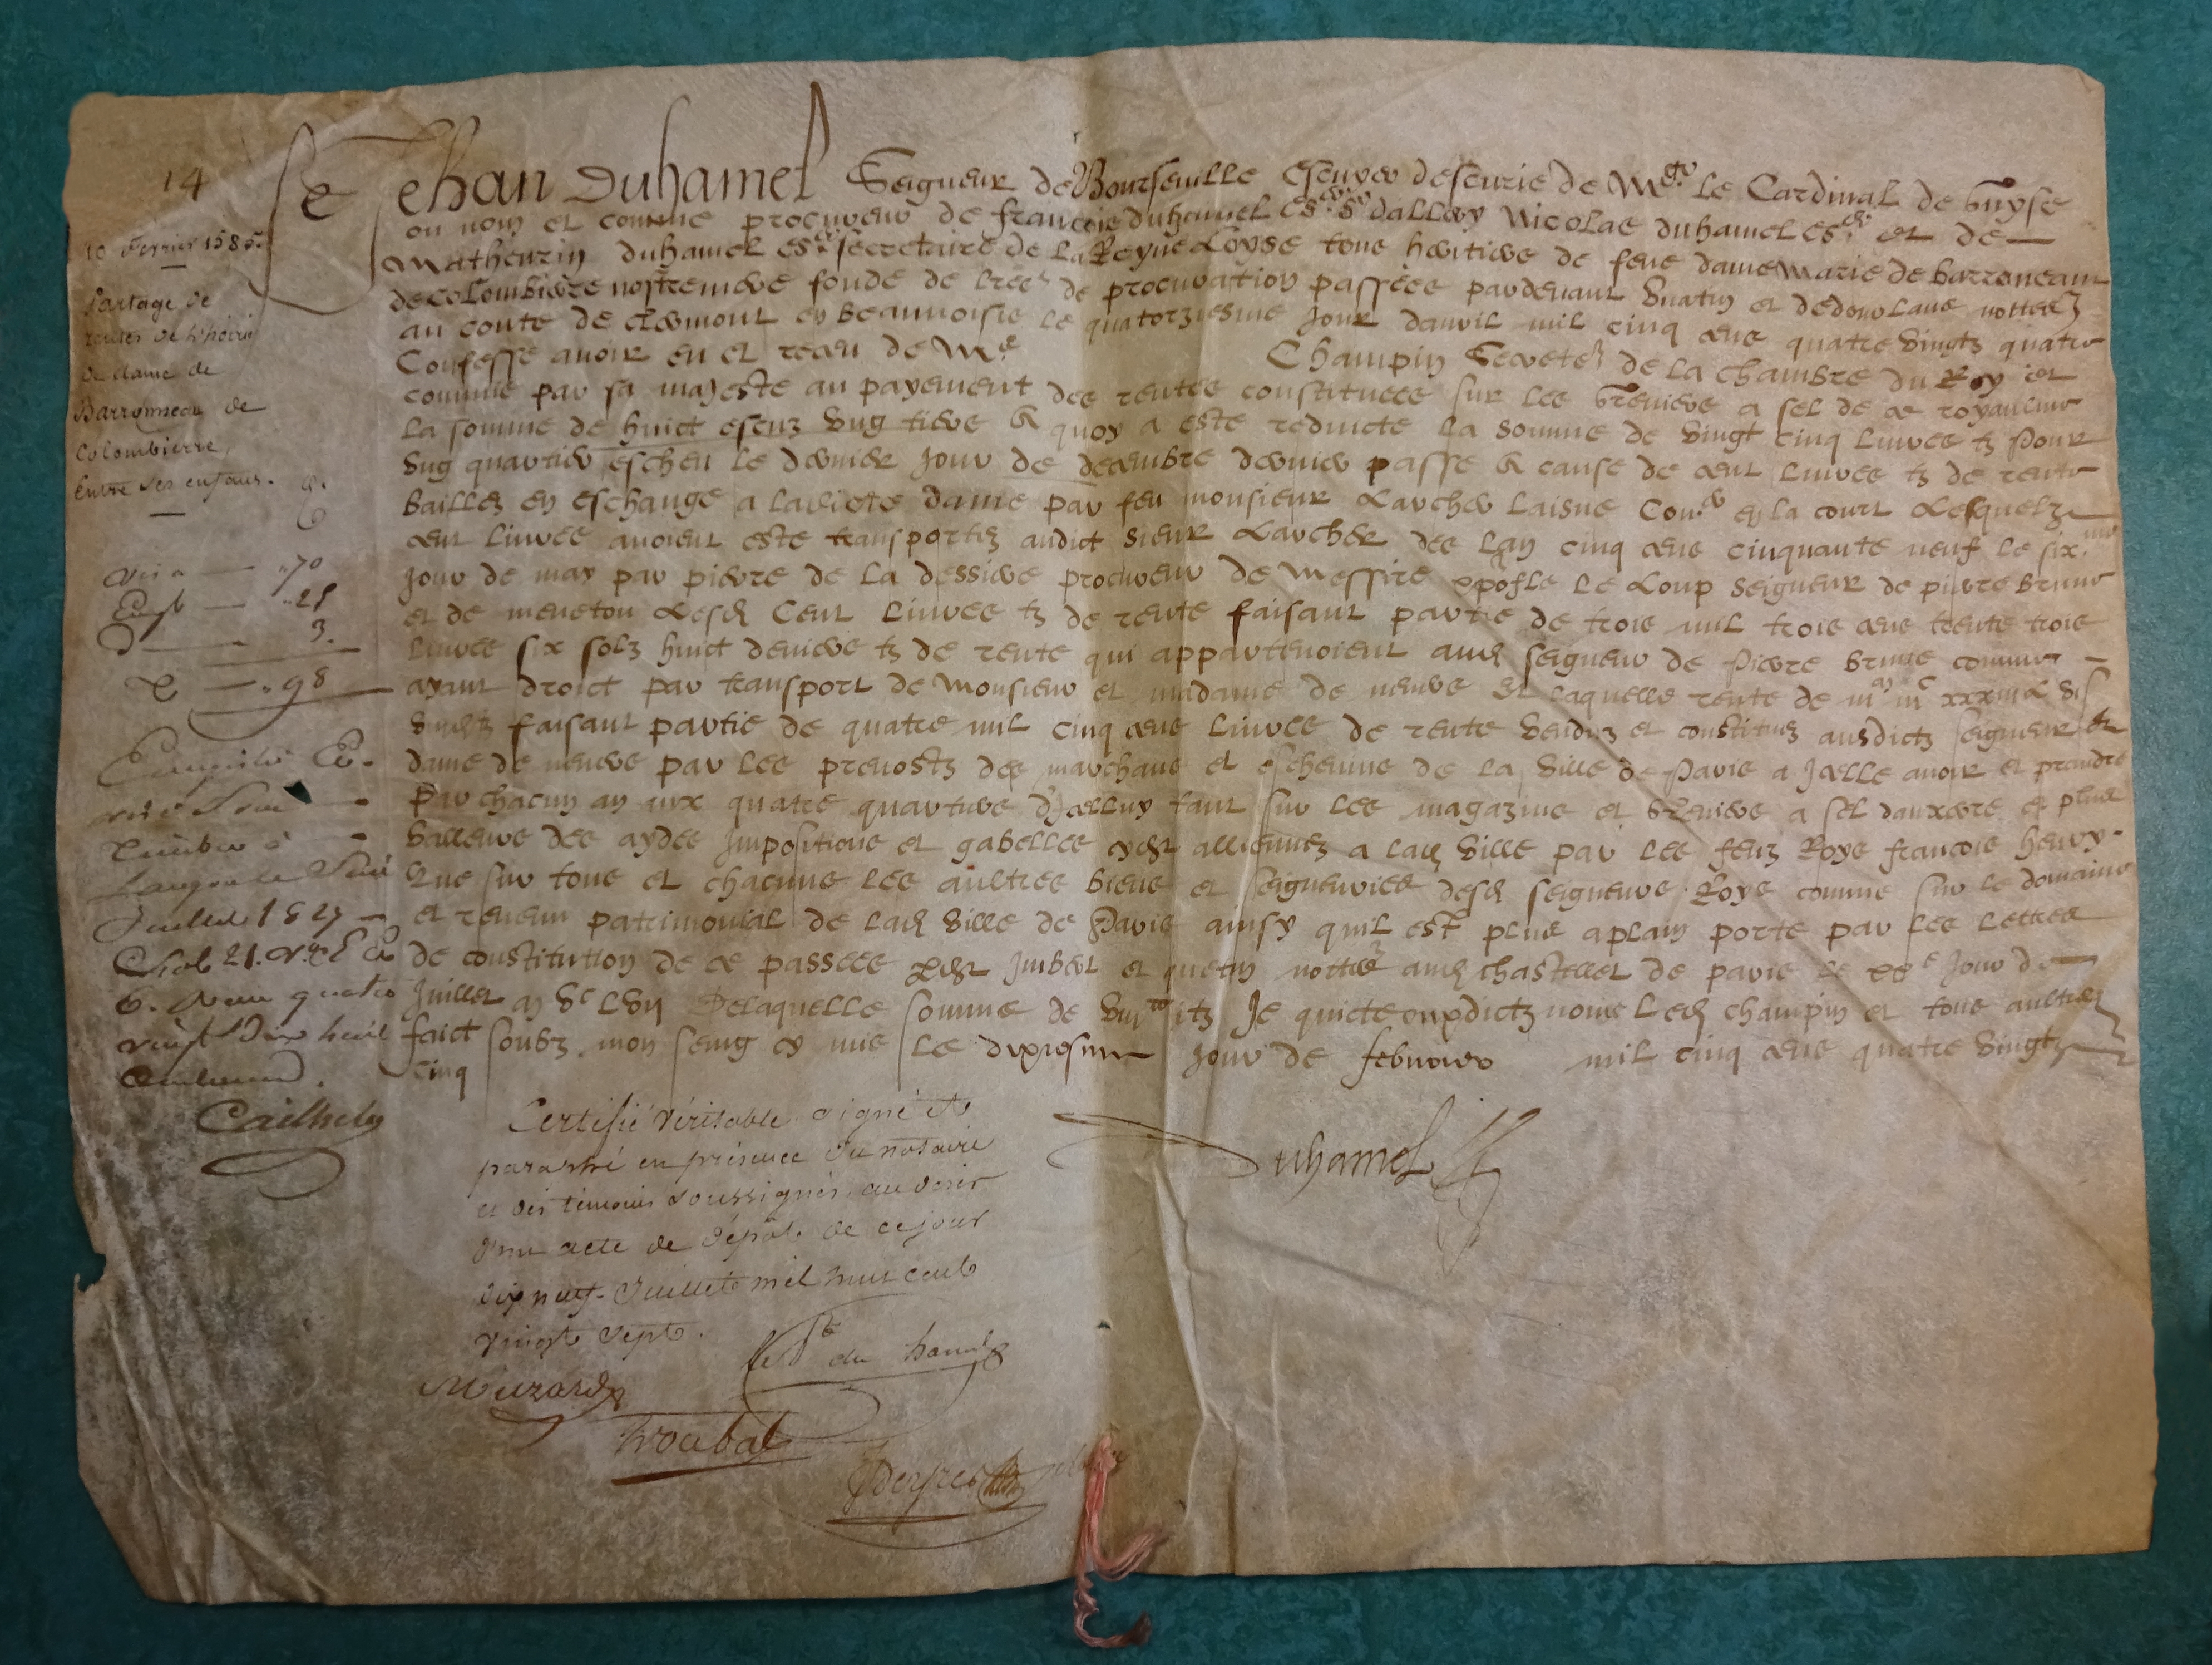 14
10 fevrier 1585.
Partage de
rentes de
de dame de
Barronneau de
Colombierre,
Entre ses enfans.
Je Jehan Duhamel Seigneur de Bourseuille Escuyer descurie de Mgr le Cardinal de Guyse
ou nom et comme procureur de francois duhamel esr sr dallery Nicolas duhamel esr et de
Mathurin duhamel esr secretaire de la Reyne Loyse tous heritiers de feue dame Marie de barroneau
de colombiere nostre mere fondé de lres de procuration passées pardevant et nottres
au conte de clermont en beauuoisis le quatorziesme Jour dauril mil cinq cens quatre vingtz quatre
Confesse auoir eu et receu de Me Champin Secretere de la chambre du Roy et
commis par sa majeste au payement des rentes constituees sur les greniers a sel de ce royaulme
La somme de huict escuz vng tiers A quoy a este reduicte la somme de vingt cinq liures tz Pour
vng quartier escheu le dernier Jour de decembre dernier passe A cause de cent liures tz de rente
baillez en eschange a ladicte dame par feu monsieur Larcher laisne Conr en la court Lesquelz
cent liures auoient este transportez audict sieur Larcher des lan cinq cens cinquante neuf le sixme
Jour de may par pierre de la dessire procureur de Messire xpofle le Loup seigneur de pierre brune
et de meneton Lesd Cent liures tz de rente faisant partie de trois mil trois cens trente trois
liures six solz huict deniers tz de rente qui appartenoient aud seigneur de Pierre brune comme
ayant droict par transport de Monsieur et madame de neuers Et laquelle rente de iijm iijc xxxiij L vj s
viij d tz faisant partie de quatre mil cinq cens liures de rente venduz et constituez ausdictz seigneur et
dame de neuers par les preuostz des marchans et escheuins de la ville de Paris a Jcelle auoir et prandre
Par chacun an aux quatre quartiers dJcelluy tant sur les magazins et greniers a sel dauxerre et plus
valleurs des aydes Impositions et gabelles allienez a lad ville par les feuz Roys francois henry
Que sur tous et chacuns les aultres biens et seigneuries desd seigneurs Roys comme sur le domaine
et reuenu patrimonial de lad ville de Paris ainsy quil est plus aplain porte par les lettres
de constitution de ce passees Jmbert et quetin nottres aud chastellet de paris le xve Jour de
Juillet m vc Lvij Delaquelle somme de viij tz Je quicte esdictz noms led champin et tous aultres
faict soubz mon seing cy mis le dixiesme Jour de febvrier mil cinq cens quatre vingtz
cinq
Duhamel
70
28
98
Juillet 1827
vingt dix huit
centimes.
Certifié véritable signé et
paraphé en présence du notaire
et des témoins soussignés au désir
d'un acte de dépôt de ce jour
dix neuf Juillet mil huit cent
vingt sept.
du hamel
Muzard
Troubat